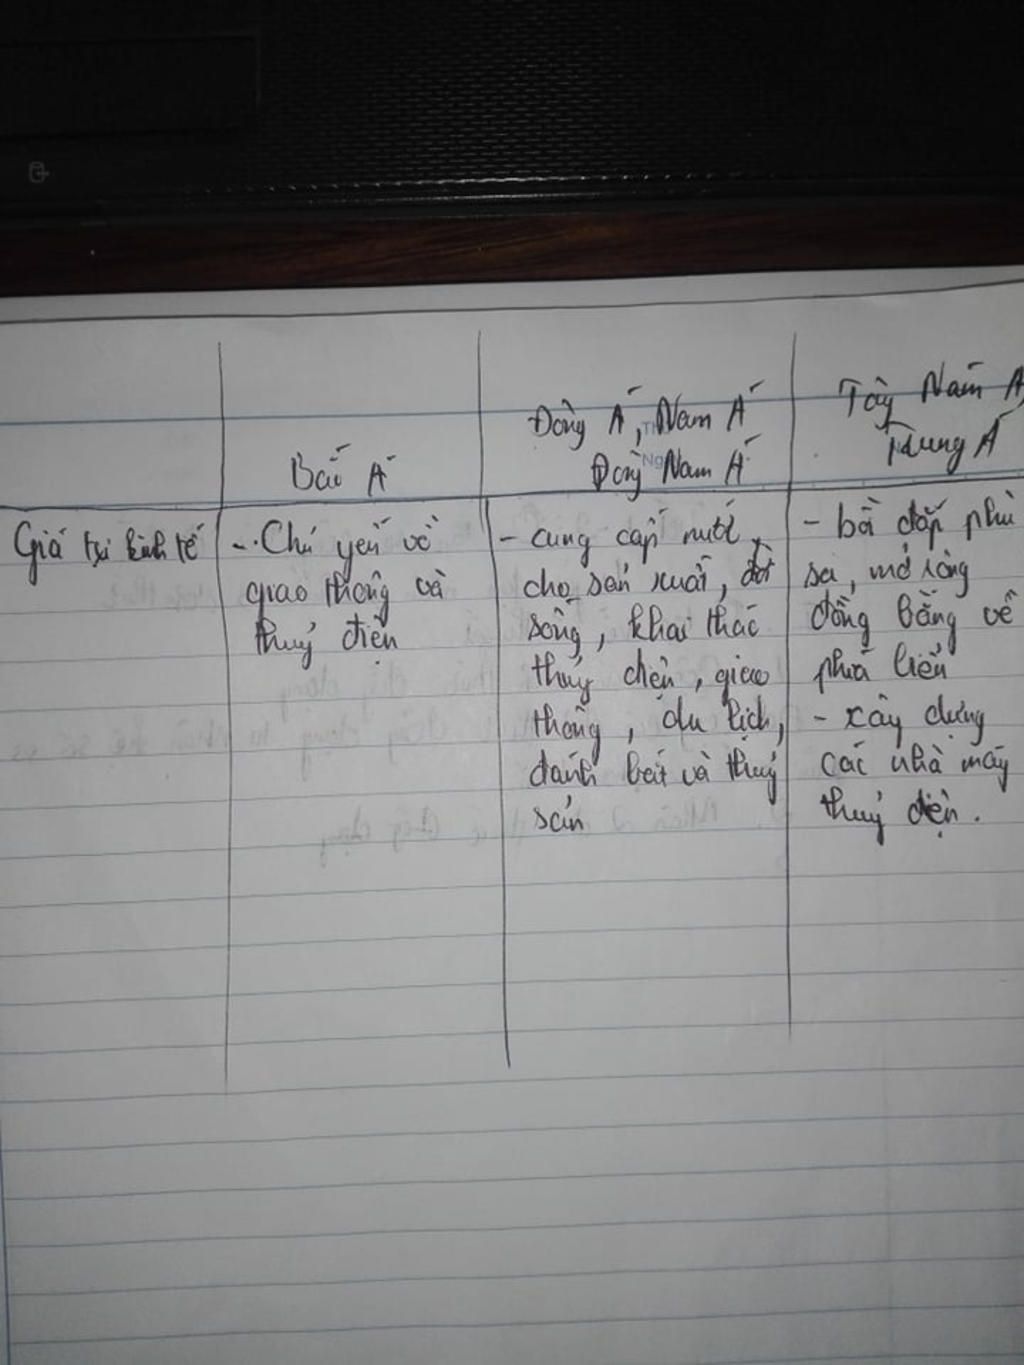 Bắc Á
Đông Á, Nam Á
Đông Nam Á
Tây Nam Á
Trung Á
Giá trị kinh tế
- Chủ yếu về
giao thông và
thuỷ điện
- cung cấp nước
cho sản xuất, đời
sống, khai thác
thuỷ điện, giao
thông, du lịch,
đánh bắt và thuỷ
sản
- bồi đắp phù
sa, mở rộng
đồng bằng về
phía biển
- xây dựng
các nhà máy
thuỷ điện.